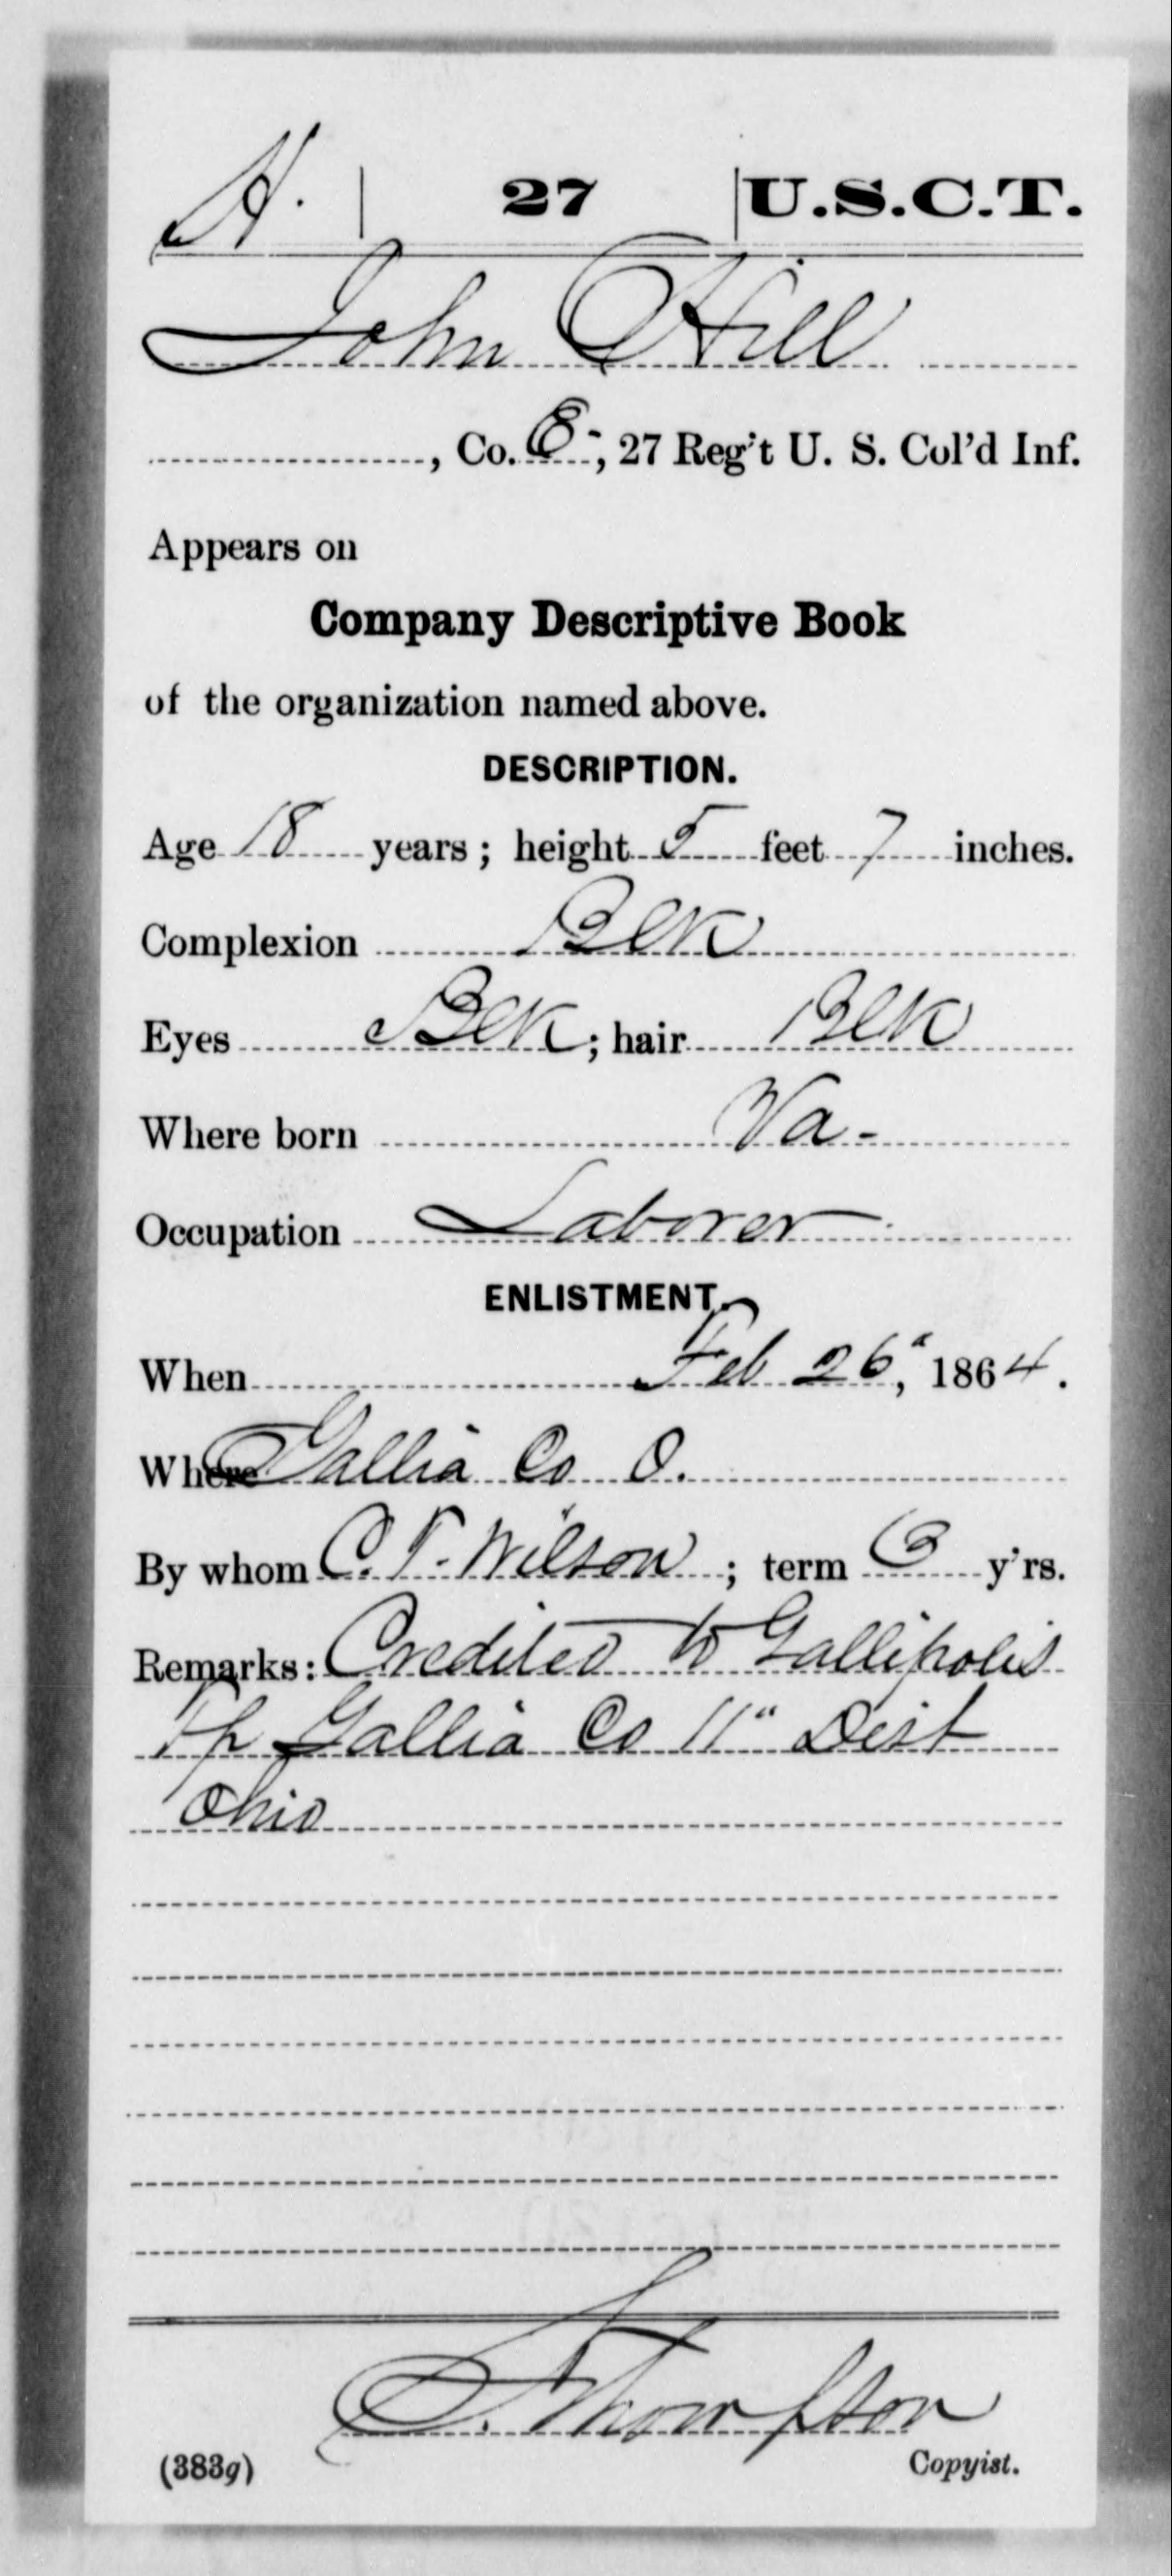 H. 27 U.S.C.T.
John Hill
, Co. E; 27 Reg't U. S. Col'd Inf.
Appears on
Company Descriptive Book
of the organization named above.
DESCRIPTION.
Age 18 years; height 5 feet 7 inches.
Complexion Blk
Eyes Blk; hair Blk
Where born Va-
Occupation Laborer
ENLISTMENT.
When Feb 26", 1864.
Where Gallia Co O.
By whom C. T. Wilson; term 3 y'rs.
Remarks: Credited to Gallipolis
Tp Gallia Co 11" Dist
Ohio
Thompson
(383g) Copyist.